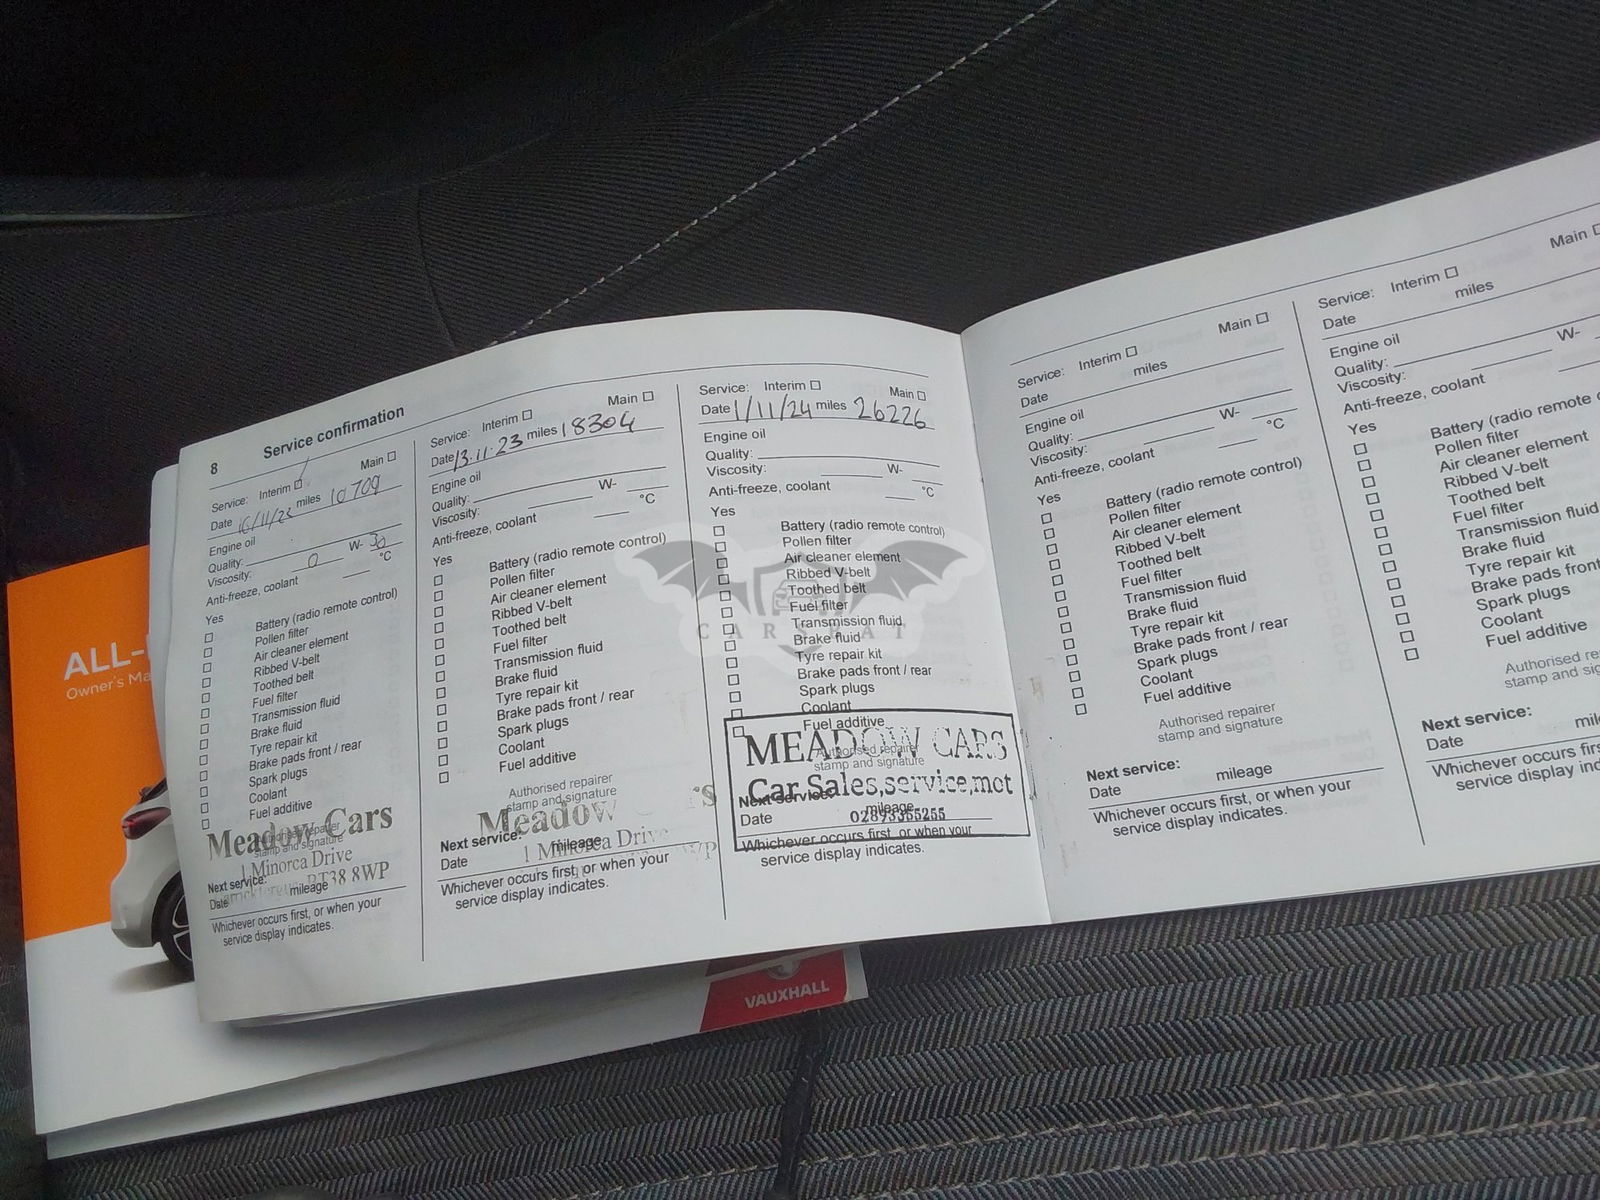 8 Service confirmation
Service: Interim Main
Date 16/11/22 miles 10709
Engine oil
Quality:
Viscosity: 0 W- 30
Anti-freeze, coolant °C
Yes
Battery (radio remote control)
Pollen filter
Air cleaner element
Ribbed V-belt
Toothed belt
Fuel filter
Transmission fluid
Brake fluid
Tyre repair kit
Brake pads front / rear
Spark plugs
Coolant
Fuel additive
Authorised repairer
stamp and signature
Meadow Cars
1 Minorca Drive
BT38 8WP
Next service:
Date mileage
Whichever occurs first, or when your
service display indicates.
Service: Interim Main
Date 13.11.23 miles 18304
Engine oil
Quality:
Viscosity: W-
Anti-freeze, coolant °C
Yes
Battery (radio remote control)
Pollen filter
Air cleaner element
Ribbed V-belt
Toothed belt
Fuel filter
Transmission fluid
Brake fluid
Tyre repair kit
Brake pads front / rear
Spark plugs
Coolant
Fuel additive
Authorised repairer
stamp and signature
Meadow rs
1 Minorca Drive
WP
Next service:
Date mileage
Whichever occurs first, or when your
service display indicates.
Service: Interim Main
Date 1/11/24 miles 26226
Engine oil
Quality:
Viscosity: W-
Anti-freeze, coolant °C
Yes
Battery (radio remote control)
Pollen filter
Air cleaner element
Ribbed V-belt
Toothed belt
Fuel filter
Transmission fluid
Brake fluid
Tyre repair kit
Brake pads front / rear
Spark plugs
Coolant
Fuel additive
Authorised repairer
stamp and signature
MEADOW CARS
Car Sales,service,mot
02893365255
Next service:
Date mileage
Whichever occurs first, or when your
service display indicates.
Service: Interim Main
Date miles
Engine oil
Quality:
Viscosity: W-
Anti-freeze, coolant °C
Yes
Battery (radio remote control)
Pollen filter
Air cleaner element
Ribbed V-belt
Toothed belt
Fuel filter
Transmission fluid
Brake fluid
Tyre repair kit
Brake pads front / rear
Spark plugs
Coolant
Fuel additive
Authorised repairer
stamp and signature
Next service:
Date mileage
Whichever occurs first, or when your
service display indicates.
Service: Interim Main
Date miles
Engine oil
Quality:
Viscosity: W-
Anti-freeze, coolant
Yes
Battery (radio remote c
Pollen filter
Air cleaner element
Ribbed V-belt
Toothed belt
Fuel filter
Transmission fluid
Brake fluid
Tyre repair kit
Brake pads front
Spark plugs
Coolant
Fuel additive
Authorised re
stamp and sig
Next service:
Date mil
Whichever occurs firs
service display ind
ALL-
Owner's Ma
VAUXHALL
CARSBAT